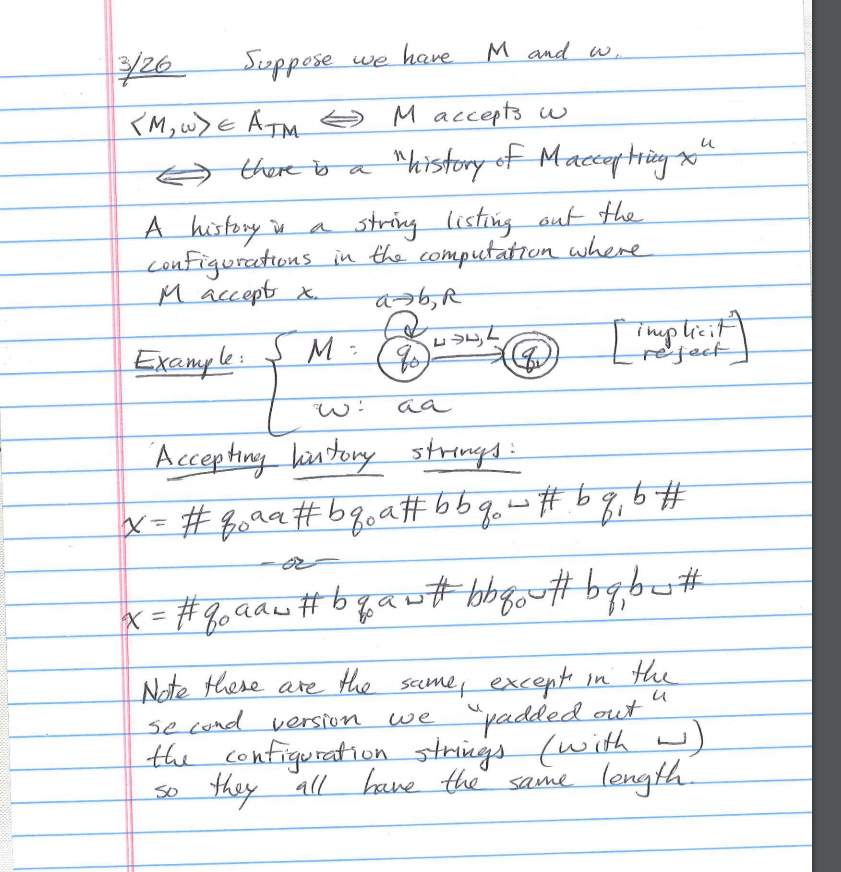 3/26 Suppose we have M and w.
<M,w> ∈ ATM ⟺ M accepts w
⟺ there is a "history of M accepting x"
A history is a string listing out the
configurations in the computation where
M accepts x.
a→b,R
Example: { M: q₀ ⊔→⊔,L q₁ [implicit
reject]
w: aa
Accepting history strings:
x = # q₀aa # bq₀a # bbq₀⊔ # bq₁b #
-or-
x = # q₀aa⊔ # bq₀a⊔ # bbq₀⊔ # bq₁b⊔ #
Note these are the same, except in the
second version we "padded out"
the configuration strings (with ⊔)
so they all have the same length.